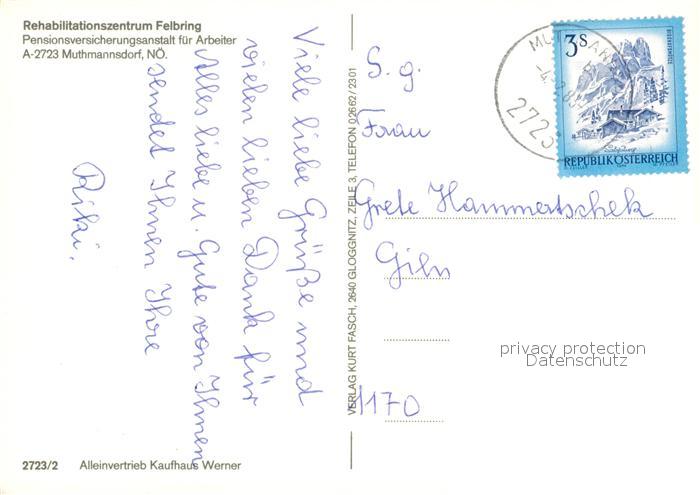 Rehabilitationszentrum Felbring
Pensionsversicherungsanstalt für Arbeiter
A-2723 Muthmannsdorf, NÖ.
Viele liebe Grüße und
vielen lieben Dank für
Alles liebe u. Gute von Ihnen
sendet Ihnen Ihre
Riki.
2723/2 Alleinvertrieb Kaufhaus Werner
VERLAG KURT FASCH, 2640 GLOGGNITZ, ZEILE 3, TELEFON 02662/2301
S. g.
Frau
Grete Hammertschek
1170
privacy protection
Datenschutz
2723
3 S
REPUBLIK ÖSTERREICH